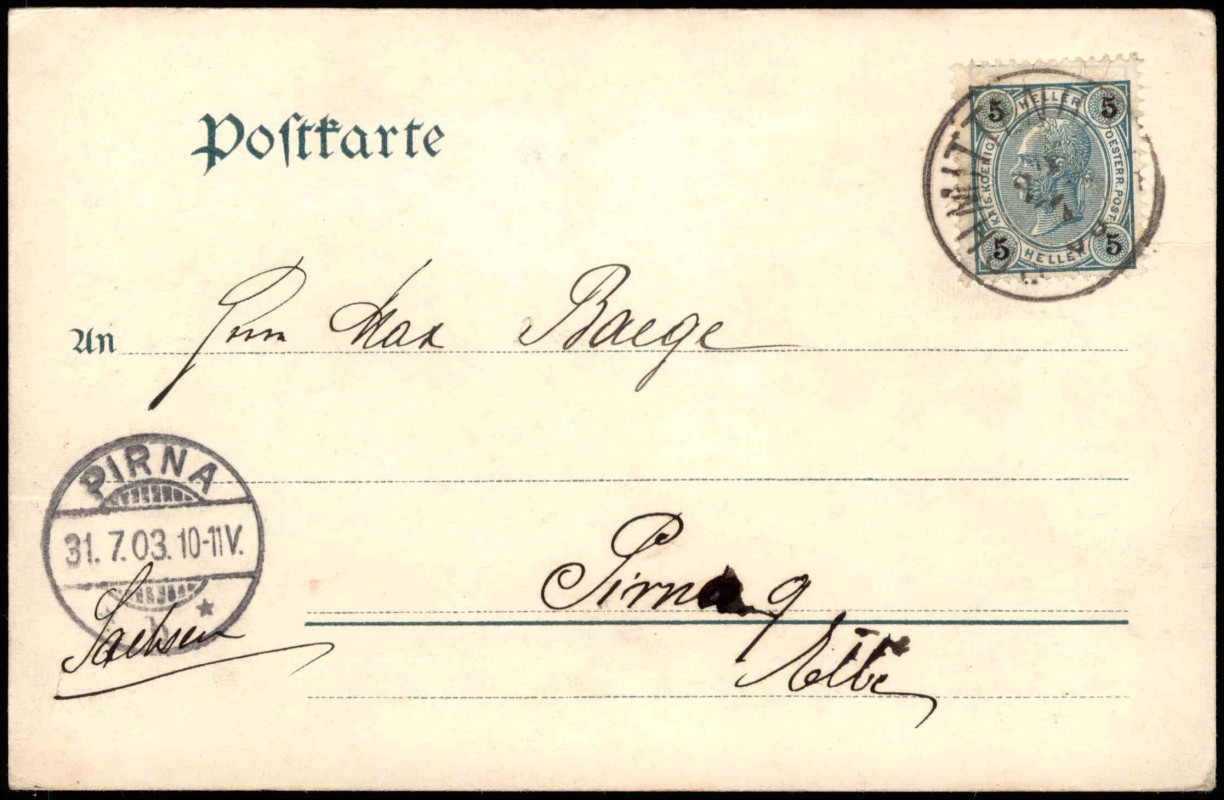 Postkarte
5 HELLER 5
KAIS. KOENIG. OESTERR. POST.
5 HELLER 5
An Herrn Max Baege
PIRNA
31. 7. 03. 10-11V.
Pirna a
Elbe
Sachsen